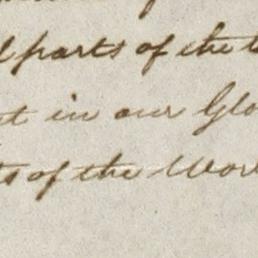 parts of the
t in our Glo
ts of the Wor